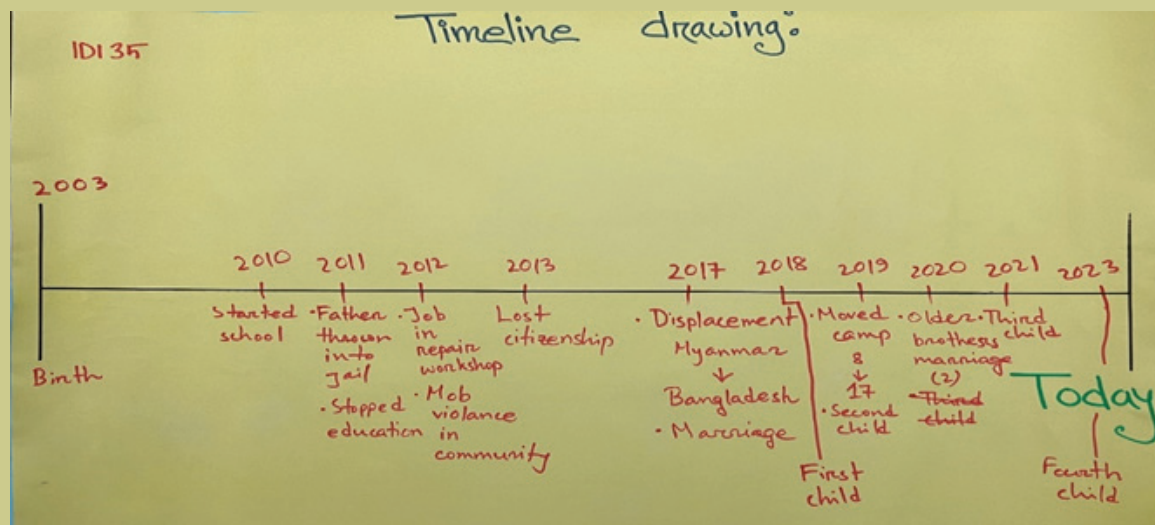 Timeline drawing:
IDI 35
2003
Birth
2010
Started
school
2011
· Father
thrown
into
Jail
· Stopped
education
2012
· Job
in
repair
workshop
· Mob
violance
in
community
2013
Lost
citizenship
2017
· Displacement
Myanmar
↓
Bangladesh
· Marriage
2018
First
child
2019
· Moved
camp
8
↓
17
· Second
child
2020
· Older
brothers
marriage
(2)
· Third
child
2021
· Third
child
2023
Today
Fourth
child